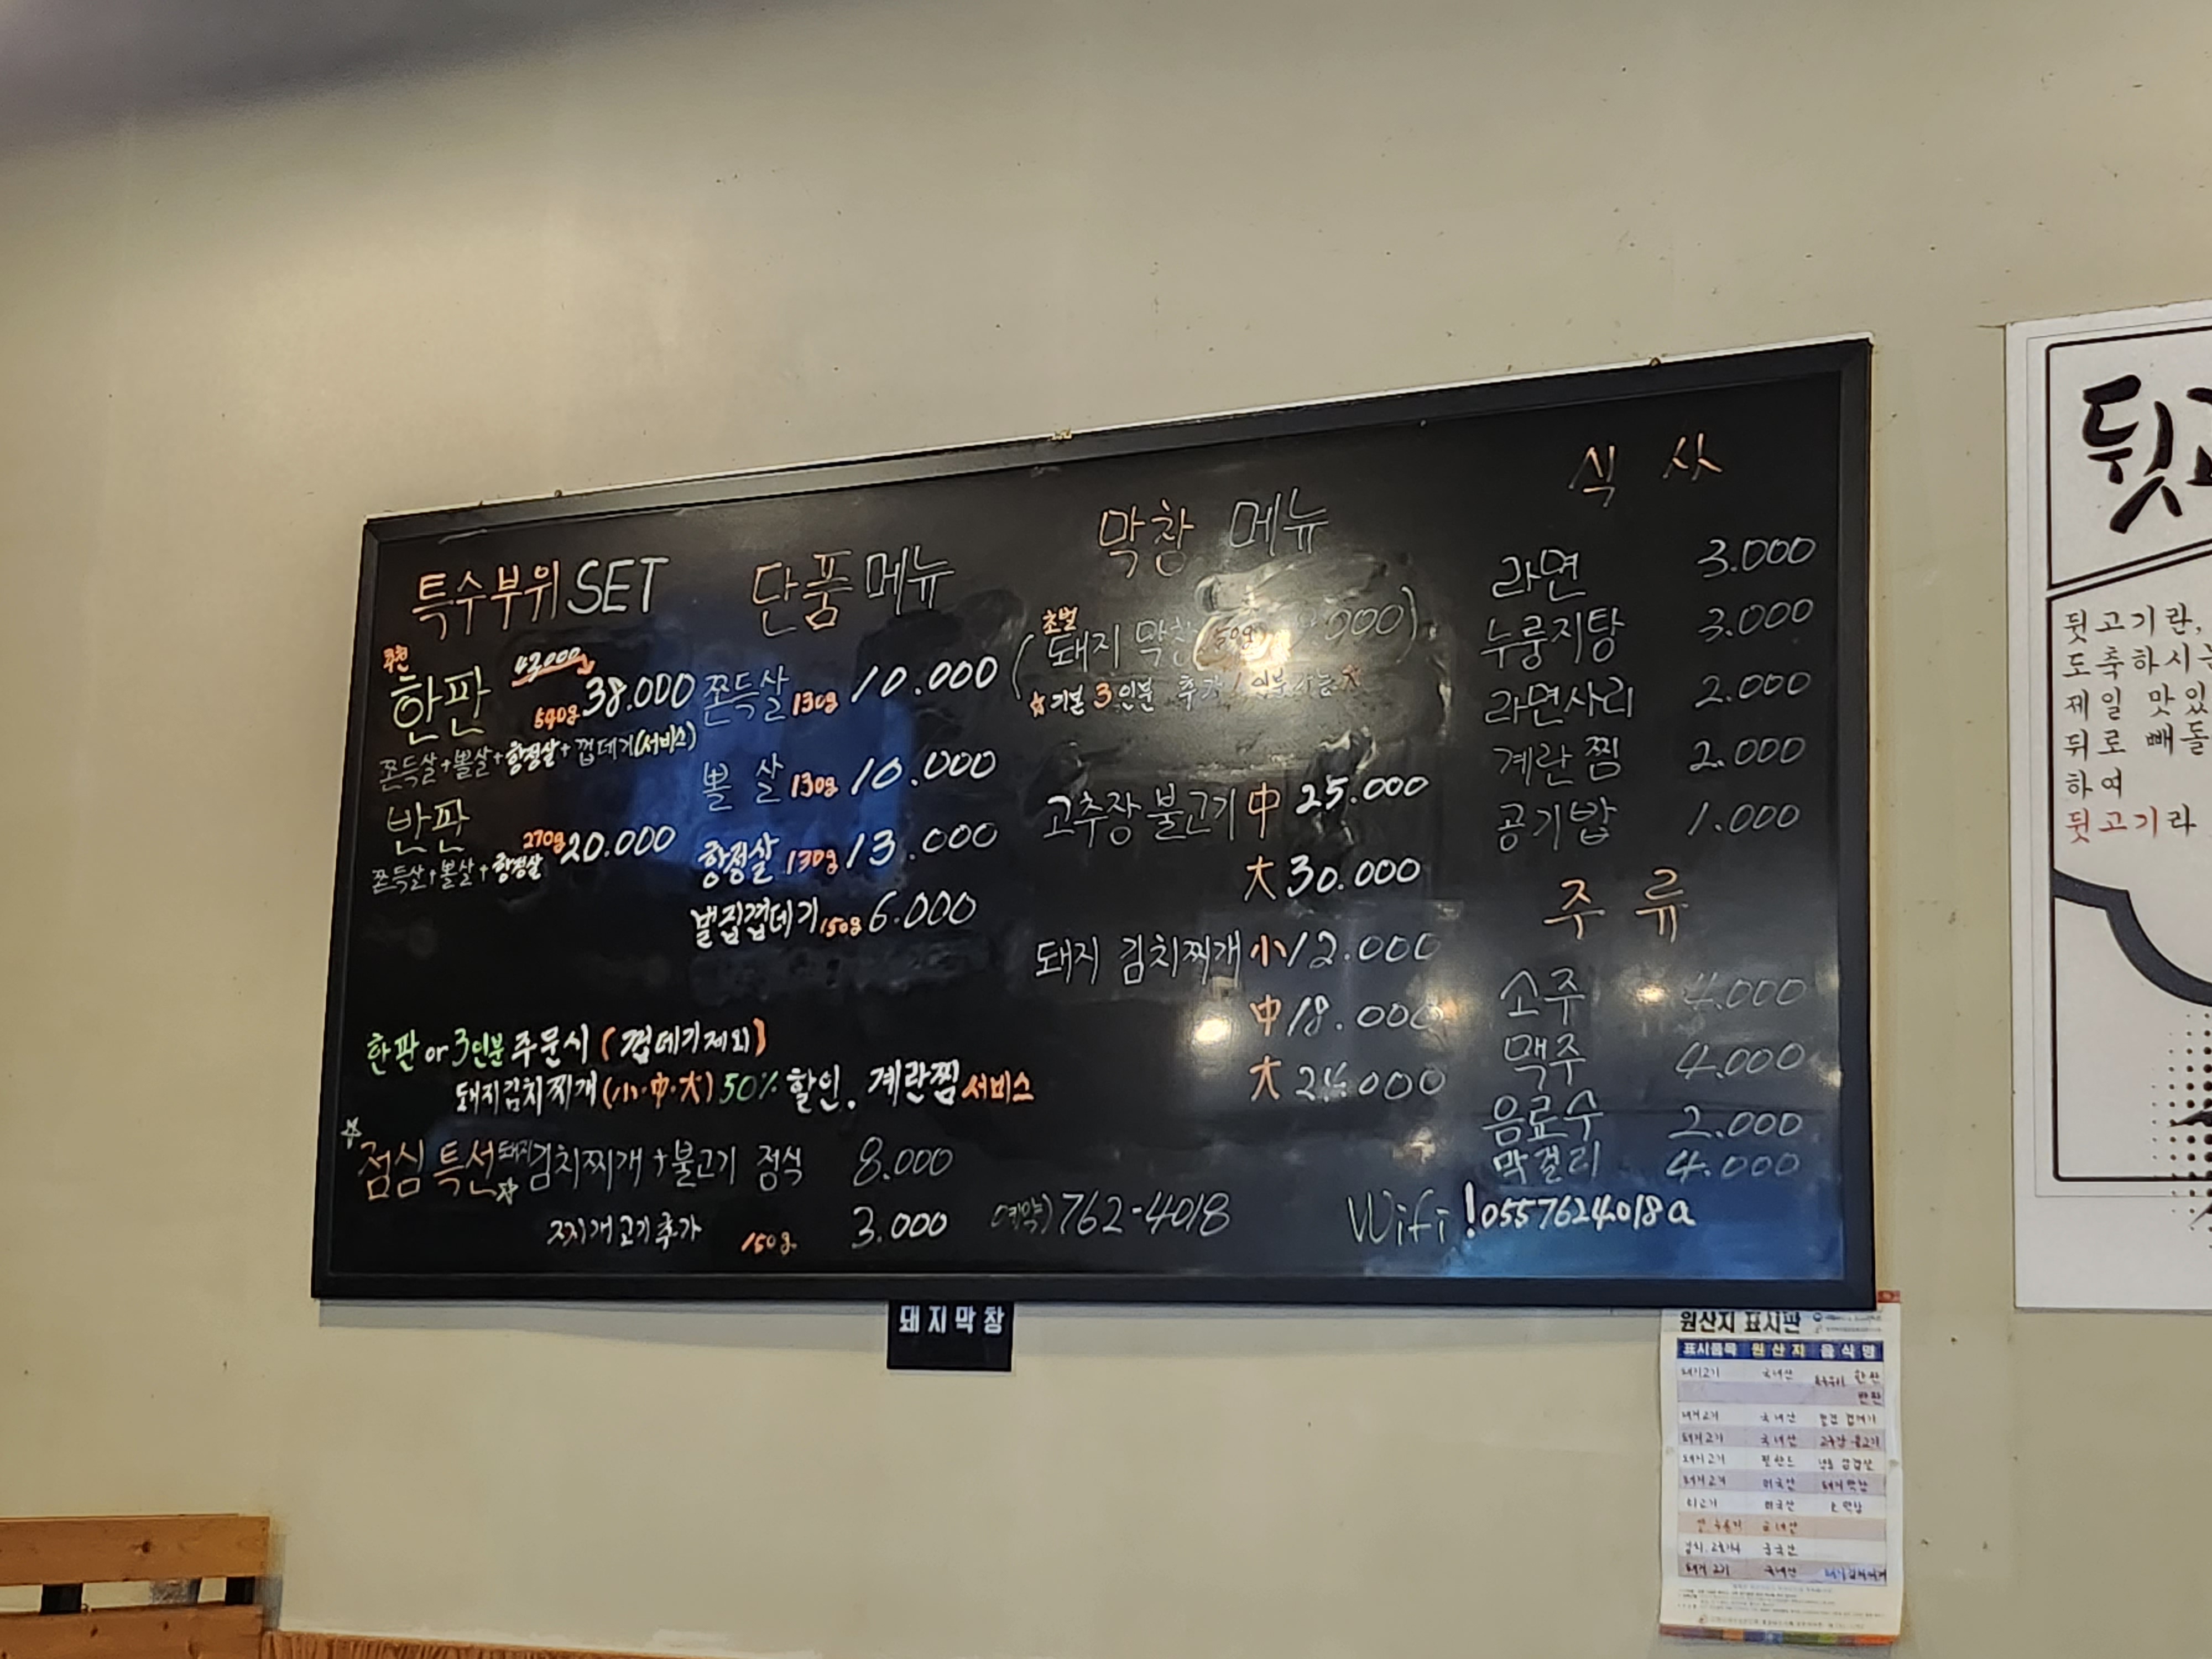 특수부위 SET
추천
한판 43.000
540g 38.000
쫀득살+뽈살+항정살+껍데기(서비스)
반판
270g 20.000
쫀득살+뽈살+항정살
단품 메뉴
쫀득살 130g 10.000
뽈살 130g 10.000
항정살 130g 13.000
벌집껍데기 150g 6.000
한판 or 3인분 주문시 (껍데기제외)
돼지김치찌개(小·中·大) 50% 할인, 계란찜 서비스
☆점심 특선☆ 돼지김치찌개+불고기 정식 8.000
찌개고기추가 150g 3.000
막창 메뉴
초벌
(돼지 막창 000)
☆기본 3인분 추가 1인분
고추장 불고기 中 25.000
大 30.000
돼지 김치찌개 小 12.000
中 18.000
大 24.000
예약) 762-4018
식 사
라면 3.000
누룽지탕 3.000
라면사리 2.000
계란찜 2.000
공기밥 1.000
주 류
소주 4.000
맥주 4.000
음료수 2.000
막걸리 4.000
Wifi !0557624018a
돼지막창
원산지 표시판
표시품목 원산지 음식명
돼지고기 국내산 한판
반판
돼지고기 국내산 벌집 껍데기
돼지고기 국내산 고추장 불고기
돼지고기 핀란드 냉동 삼겹살
돼지고기 미국산 돼지막창
쇠고기 미국산 소막창
국내산
중국산
돼지고기 국내산 돼지김치찌개
뒷고
뒷고기란,
도축하시는
제일 맛있
뒤로 빼돌
하여
뒷고기라